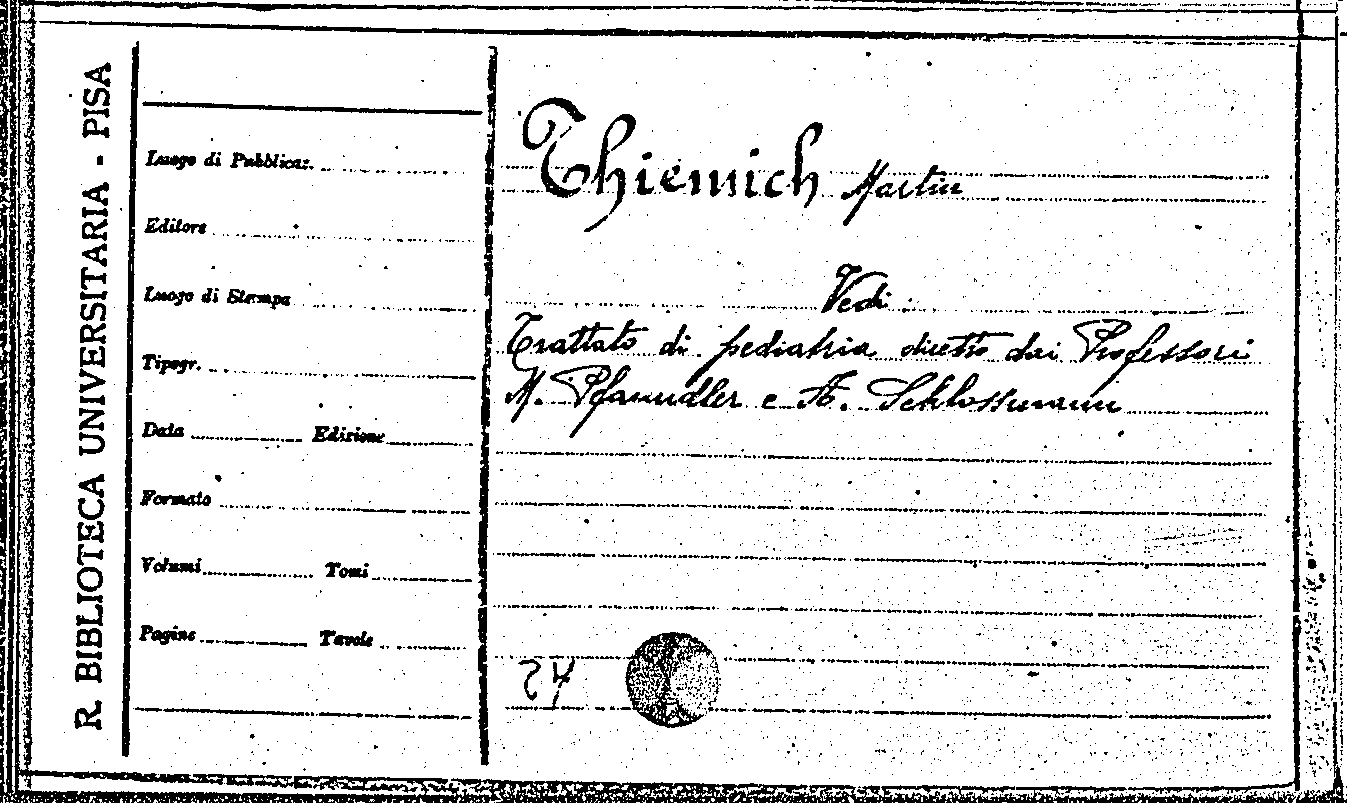 R. BIBLIOTECA UNIVERSITARIA - PISA
Luogo di Pubblicaz.
Editore
Luogo di Stampa
Tipogr.
Data Edizione
Formato
Volumi Tomi
Pagine Tavole
Thiemich Martin
Vedi
Trattato di pediatria diretto dai Professori
M. Pfaundler e A. Schlossmann